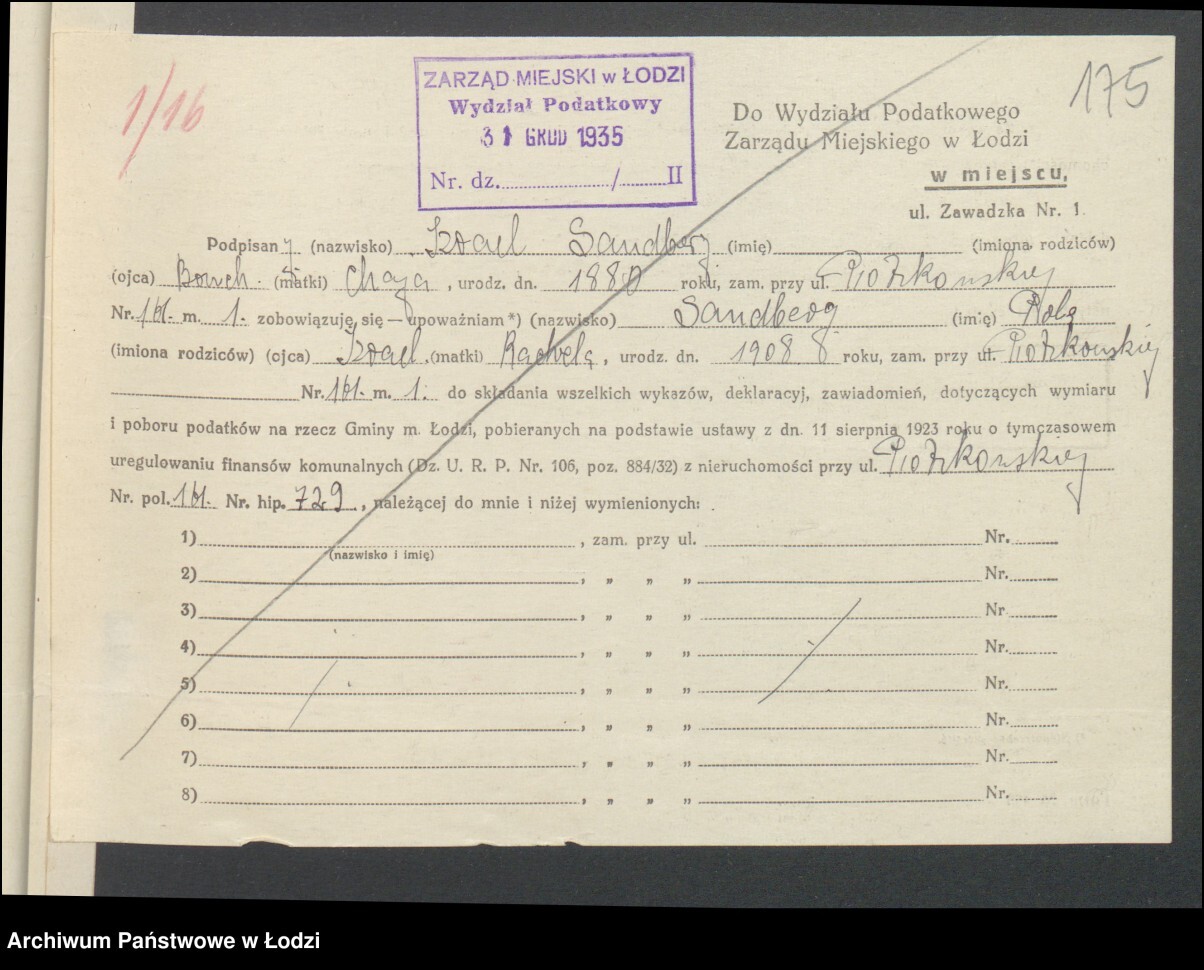 1/16
ZARZĄD MIEJSKI w ŁODZI
Wydział Podatkowy
31 GRUD 1935
Nr. dz. / II
175
Do Wydziału Podatkowego
Zarządu Miejskiego w Łodzi
w miejscu,
ul. Zawadzka Nr. 1.
Podpisany (nazwisko) Izrael Sandberg (imię) (imiona rodziców)
(ojca) (matki) Chaja, urodz. dn. 1880 roku, zam. przy ul. Piotrkowskiej
Nr. 161. m. 1. zobowiązuję się — upoważniam *) (nazwisko) Sandberg (imię)
(imiona rodziców) (ojca) Izrael (matki) , urodz. dn. 1908 roku, zam. przy ul. Piotrkowskiej
Nr. 161. m. 1. do składania wszelkich wykazów, deklaracyj, zawiadomień, dotyczących wymiaru
i poboru podatków na rzecz Gminy m. Łodzi, pobieranych na podstawie ustawy z dn. 11 sierpnia 1923 roku o tymczasowem
uregulowaniu finansów komunalnych (Dz. U. R. P. Nr. 106, poz. 884/32) z nieruchomości przy ul. Piotrkowskiej
Nr. pol. 161. Nr. hip. 729, należącej do mnie i niżej wymienionych:
1) , zam. przy ul. Nr.
(nazwisko i imię)
2) , „ „ „ Nr.
3) , „ „ „ Nr.
4) , „ „ „ Nr.
5) , „ „ „ Nr.
6) , „ „ „ Nr.
7) , „ „ „ Nr.
8) , „ „ „ Nr.
Archiwum Państwowe w Łodzi